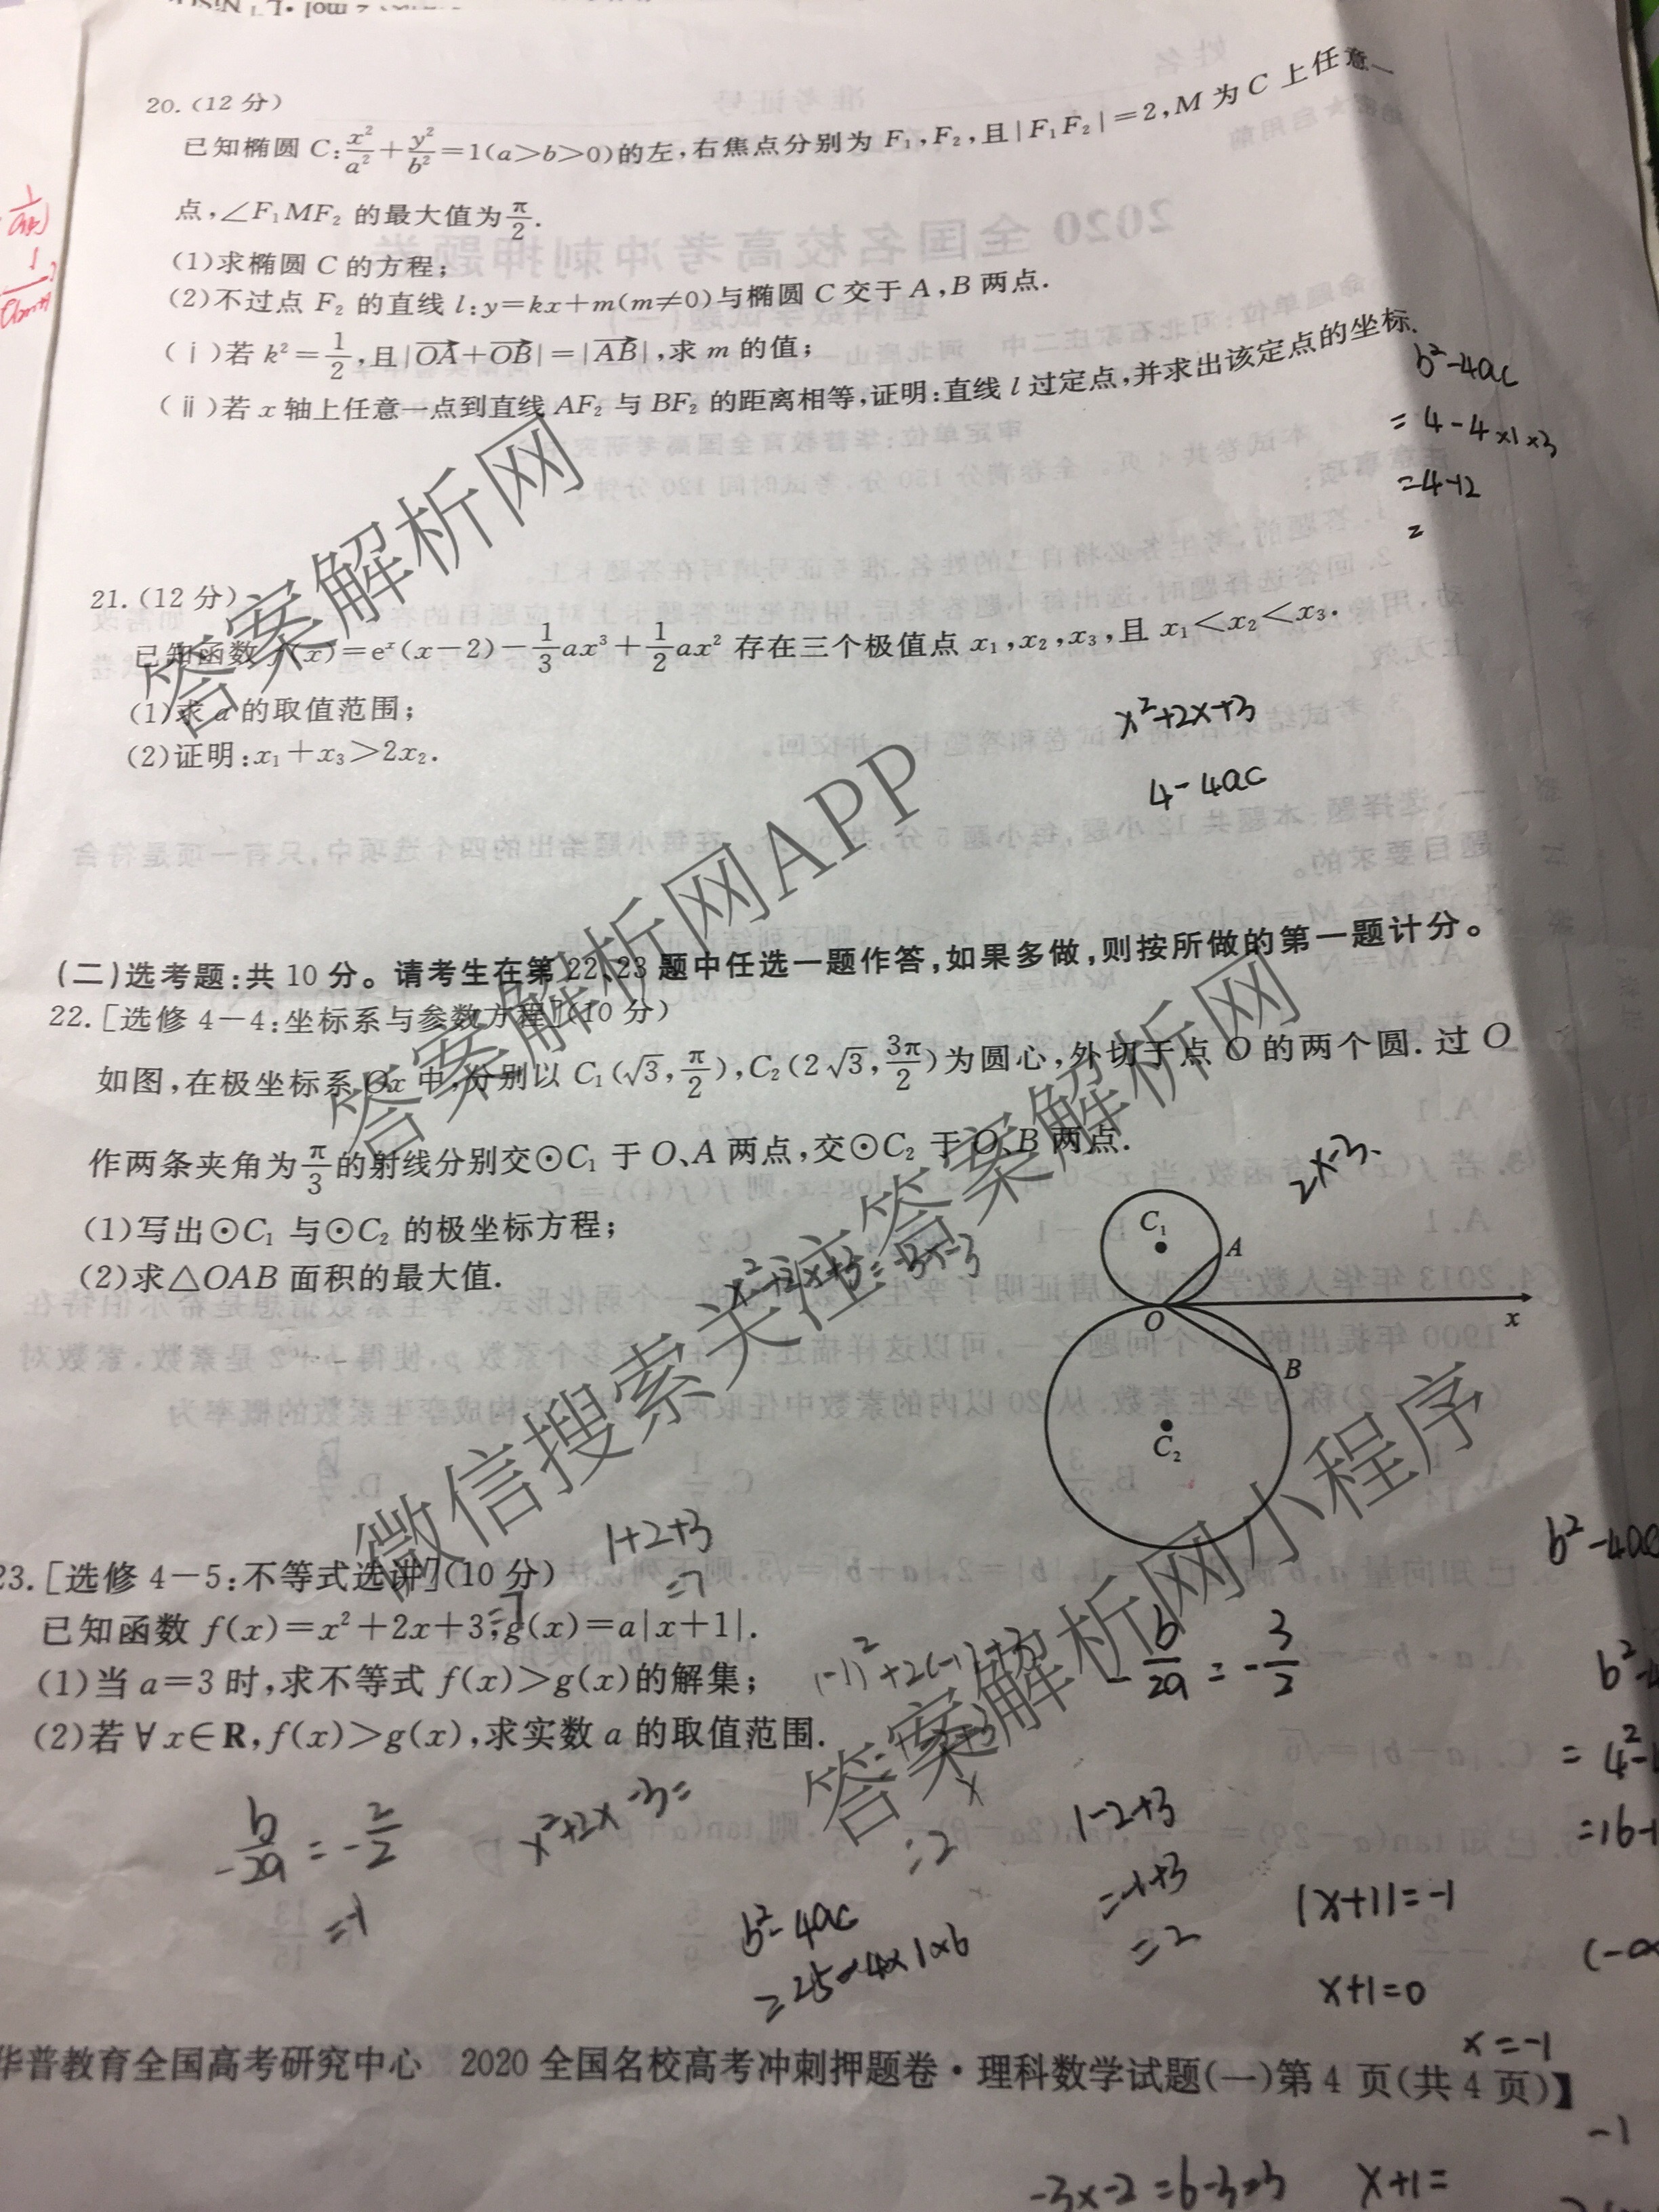 20.(12分)
已知椭圆C:x²/a²+y²/b²=1(a>b>0)的左,右焦点分别为F₁,F₂,且|F₁F₂|=2,M为C上任意一
点,∠F₁MF₂的最大值为π/2.
(1)求椭圆C的方程;
(2)不过点F₂的直线l:y=kx+m(m≠0)与椭圆C交于A,B两点.
(ⅰ)若k²=1/2,且|OA+OB|=|AB|,求m的值;
(ⅱ)若x轴上任意一点到直线AF₂与BF₂的距离相等,证明:直线l过定点,并求出该定点的坐标.
b²-4ac
=4-4×1×3
=4-12
=
21.(12分)
已知函数f(x)=eˣ(x-2)-1/3ax³+1/2ax²存在三个极值点x₁,x₂,x₃,且x₁<x₂<x₃.
(1)求a的取值范围;
(2)证明:x₁+x₃>2x₂.
x²+2x+3
4-4ac
(二)选考题:共10分。请考生在第22、23题中任选一题作答,如果多做,则按所做的第一题计分。
22.[选修4-4:坐标系与参数方程](10分)
如图,在极坐标系Ox中,分别以C₁(√3,π/2),C₂(2√3,3π/2)为圆心,外切于点O的两个圆.过O
作两条夹角为π/3的射线分别交⊙C₁于O、A两点,交⊙C₂于O、B两点.
(1)写出⊙C₁与⊙C₂的极坐标方程;
(2)求△OAB面积的最大值.
C₁
A
O
x
B
C₂
x²+2x+3=-3x-3
1+2+3
=7
23.[选修4-5:不等式选讲](10分)
已知函数f(x)=x²+2x+3,g(x)=a|x+1|.
(1)当a=3时,求不等式f(x)>g(x)的解集;
(2)若∀x∈R,f(x)>g(x),求实数a的取值范围.
(-1)²+2(-1)+3
-b/2a=-3/2
-b/2a=-2/2
=-1
x²+2x-3=
=2
1-2+3
=-1+3
=2
b²-4ac
=25-4×1×6
|x+1|=-1
x+1=0
x=-1
华普教育全国高考研究中心 2020全国名校高考冲刺押题卷·理科数学试题(一)第4页(共4页)】
-1
-3x-2=6-3=3
x+1=
答案解析网
答案解析网APP
微信搜索关注答案解析网
答案解析网小程序